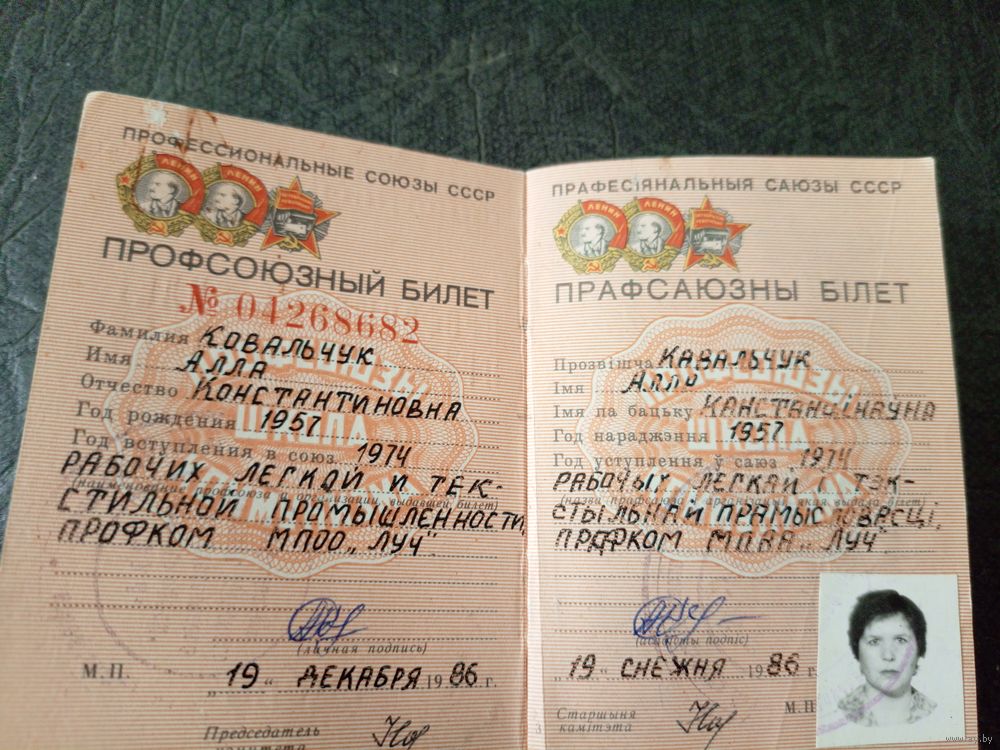 ПРОФЕССИОНАЛЬНЫЕ СОЮЗЫ СССР
ЛЕНИН
ЛЕНИН
ПРОФСОЮЗНЫЙ БИЛЕТ
№ 04268682
Фамилия КОВАЛЬЧУК
Имя АЛЛА
Отчество КОНСТАНТИНОВНА
Год рождения 1957
Год вступления в союз 1974
РАБОЧИХ ЛЕГКОЙ И ТЕК-
(наименование профсоюза и организации, выдавшей билет)
СТИЛЬНОЙ ПРОМЫШЛЕННОСТИ,
ПРОФКОМ МПОО „ЛУЧ"
(личная подпись)
М.П. „19" ДЕКАБРЯ 1986 г.
Председатель
комитета
ПРАФЕСІЯНАЛЬНЫЯ САЮЗЫ СССР
ЛЕНИН
ЛЕНИН
ПРАФСАЮЗНЫ БІЛЕТ
Прозвішча КАВАЛЬЧУК
Імя АЛЛА
Імя па бацьку КАНСТАНЦІНАЎНА
Год нараджэння 1957
Год уступлення ў саюз 1974
РАБОЧЫХ ЛЕГКАЙ І ТЭК-
(назва прафсаюза і арганізацыі, якая выдала білет)
СТЫЛЬНАЙ ПРАМЫСЛОВАСЦІ,
ПРАФКОМ МПАА „ЛУЧ"
(асабісты подпіс)
„19" СНЕЖНЯ 1986
М.П.
Старшыня
камітэта
3
www.ay.by